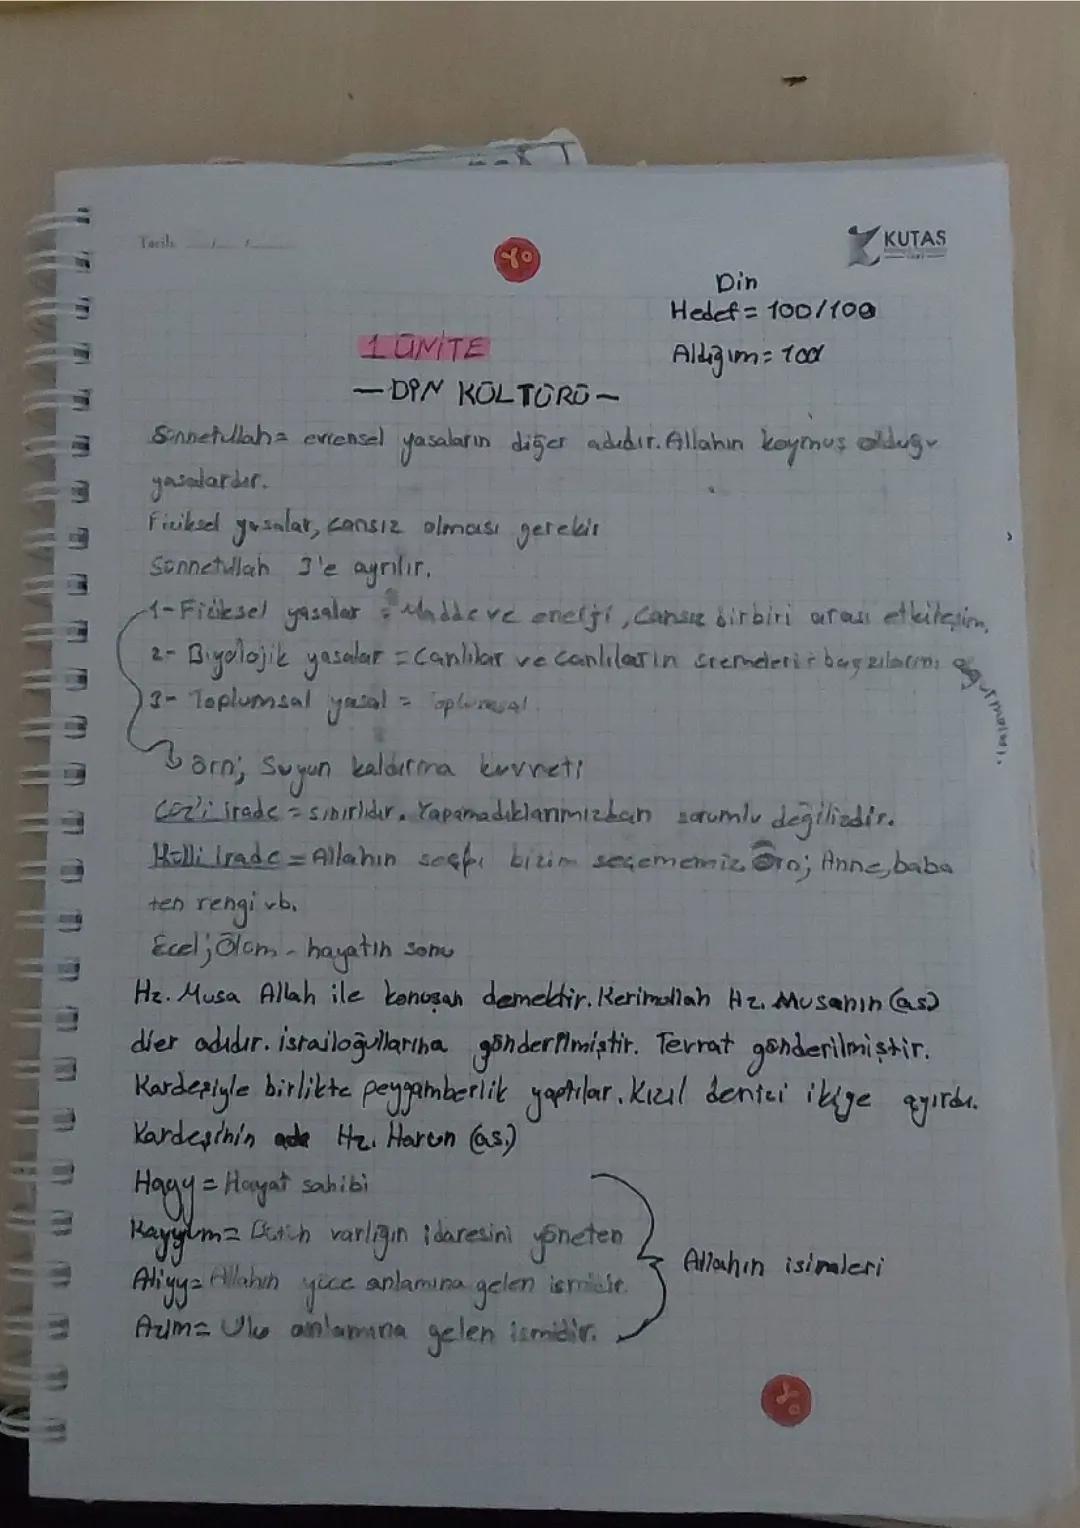 Tarih: / /
KUTAS
Din
Hedef = 100/100
Aldığım = 100
1 ÜNİTE
— DİN KÜLTÜRÜ —
Sünnetullah = evrensel yasaların diğer adıdır. Allahın koymuş olduğu
yasalardır.
Fiziksel yasalar, cansız olması gerekir
Sünnetullah 3'e ayrılır.
1- Fiziksel yasalar = Madde ve enerji, cansız birbiri arası etkileşim.
2- Biyolojik yasalar = Canlılar ve canlıların
3- Toplumsal yasal = Toplumsal
Örn; Suyun kaldırma kuvveti
Cüz'i irade = sınırlıdır. Yapamadıklarımızdan sorumlu değilizdir.
Külli İrade = Allahın seçtiği bizim seçememiz Örn; Anne, baba
ten rengi vb.
Ecel; Ölüm - hayatın sonu
Hz. Musa Allah ile konuşan demektir. Kerimullah Hz. Musanın (as)
dier adıdır. israiloğullarına gönderilmiştir. Tevrat gönderilmiştir.
Kardeşiyle birlikte peygamberlik yaptılar. Kızıl denizi ikiye ayırdı.
Kardeşinin adı Hz. Harun (as.)
Hayy = Hayat sahibi
Kayyum = Bütün varlığın idaresini yöneten
Aliyy = Allahın yüce anlamına gelen ismidir.
Azim = Ulu anlamına gelen ismidir.
Allahın isimleri